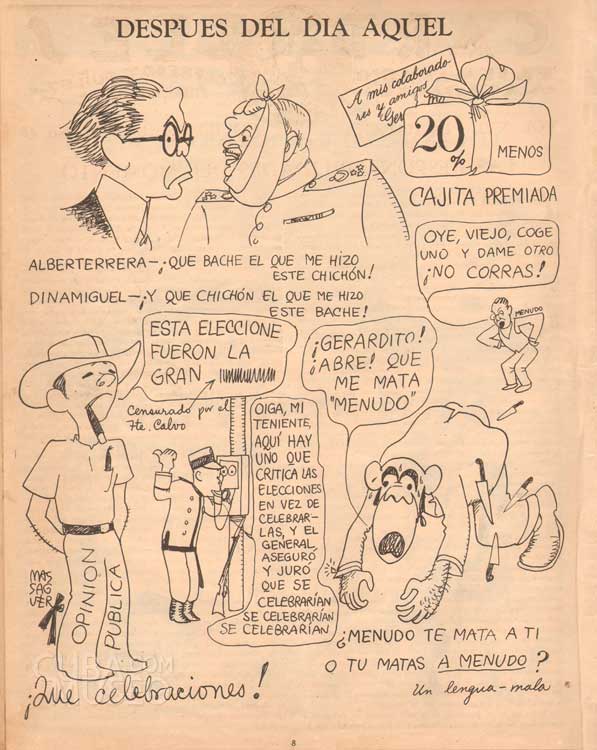 DESPUES DEL DIA AQUEL
A mis colaborado-
res y amigos
20
% MENOS
CAJITA PREMIADA
ALBERTERRERA—¡QUE BACHE EL QUE ME HIZO
ESTE CHICHÓN!
DINAMIGUEL—¡Y QUE CHICHÓN EL QUE ME HIZO
ESTE BACHE!
OYE, VIEJO, COGE
UNO Y DAME OTRO
¡NO CORRAS!
MENUDO
ESTA ELECCIONE
FUERON LA
GRAN
Censurado por el
Fte. Calvo
¡GERARDITO!
¡ABRE! QUE
ME MATA
"MENUDO"
OIGA, MI
TENIENTE,
AQUÍ HAY
UNO QUE
CRITICA LAS
ELECCIONES
EN VEZ DE
CELEBRAR-
LAS, Y EL
GENERAL
ASEGURÓ
Y JURÓ
QUE SE
CELEBRARÍAN
SE CELEBRARÍAN
SE CELEBRARÍAN
OPINIÓN
PUBLICA
MAS
SAG
UER
¡Que celebraciones!
¿MENUDO TE MATA A TI
O TU MATAS A MENUDO?
Un lengua-mala
8